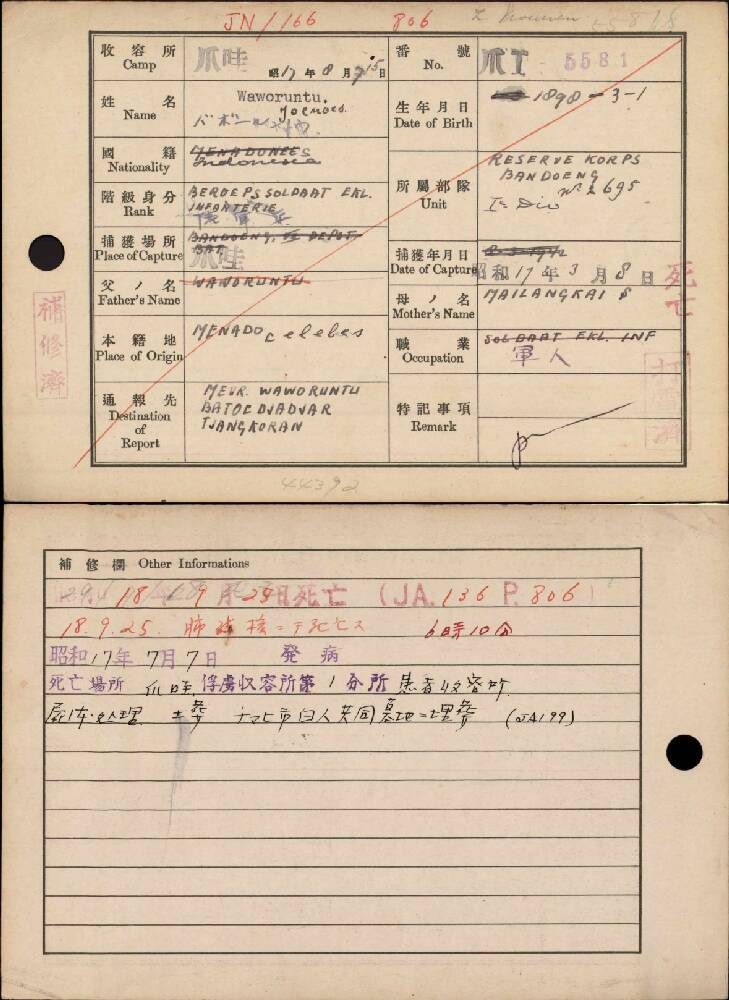 JN/166 806
收容所 Camp 爪哇 昭17年8月15日
番號 No. 爪I 5581
姓名 Name Waworuntu. Jocnoes.
生年月日 Date of Birth 1898-3-1
國籍 Nationality MENADONEES
Indonesia
階級身分 Rank BEROEPSSOLDAAT EKL.
INFANTERIE
所屬部隊 Unit RESERVE KORPS
BANDOENG
No 2695
Ie Div
捕獲場所 Place of Capture BANDOENG, 1e DEPOT
BAT
爪哇
捕獲年月日 Date of Capture 8-3-1942
昭和17年3月8日
死亡
父ノ名 Father's Name WAWORUNTU
母ノ名 Mother's Name MAILANGKAI S
本籍地 Place of Origin MENADO Celebes
職業 Occupation SOLDAAT EKL. INF
軍人
通報先 Destination of Report MEVR. WAWORUNTU
BATOE DJADJAR
TJANGKORAN
特記事項 Remark
補修濟
44392
補修欄 Other Informations
18 9月25日死亡 (JA. 136 P. 806)
18.9.25. 肺結核ニテ死亡ス 6時10分
昭和17年7月7日 発病
死亡場所 爪哇 俘虜収容所第1分所 患者収容所
屍体ノ処理 土葬 チマヒ市白人共同墓地ニ埋葬 (JA199)